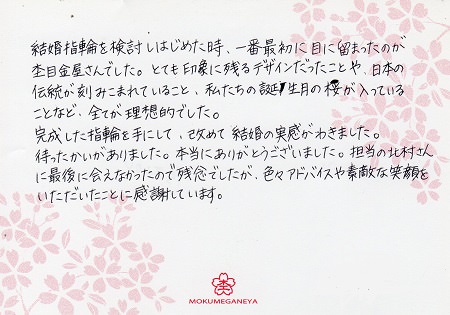 結婚指輪を検討しはじめた時、一番最初に目に留まったのが
杢目金屋さんでした。とても印象に残るデザインだったことや、日本の
伝統が刻みこまれていること、私たちの誕生月の桜が入っている
ことなど、全てが理想的でした。
完成した指輪を手にして、改めて結婚の実感がわきました。
待ったかいがありました。本当にありがとうございました。担当の北村さん
に最後に会えなかったので残念でしたが、色々アドバイスや素敵な笑顔を
いただいたことに感謝しています。
杢
MOKUMEGANEYA